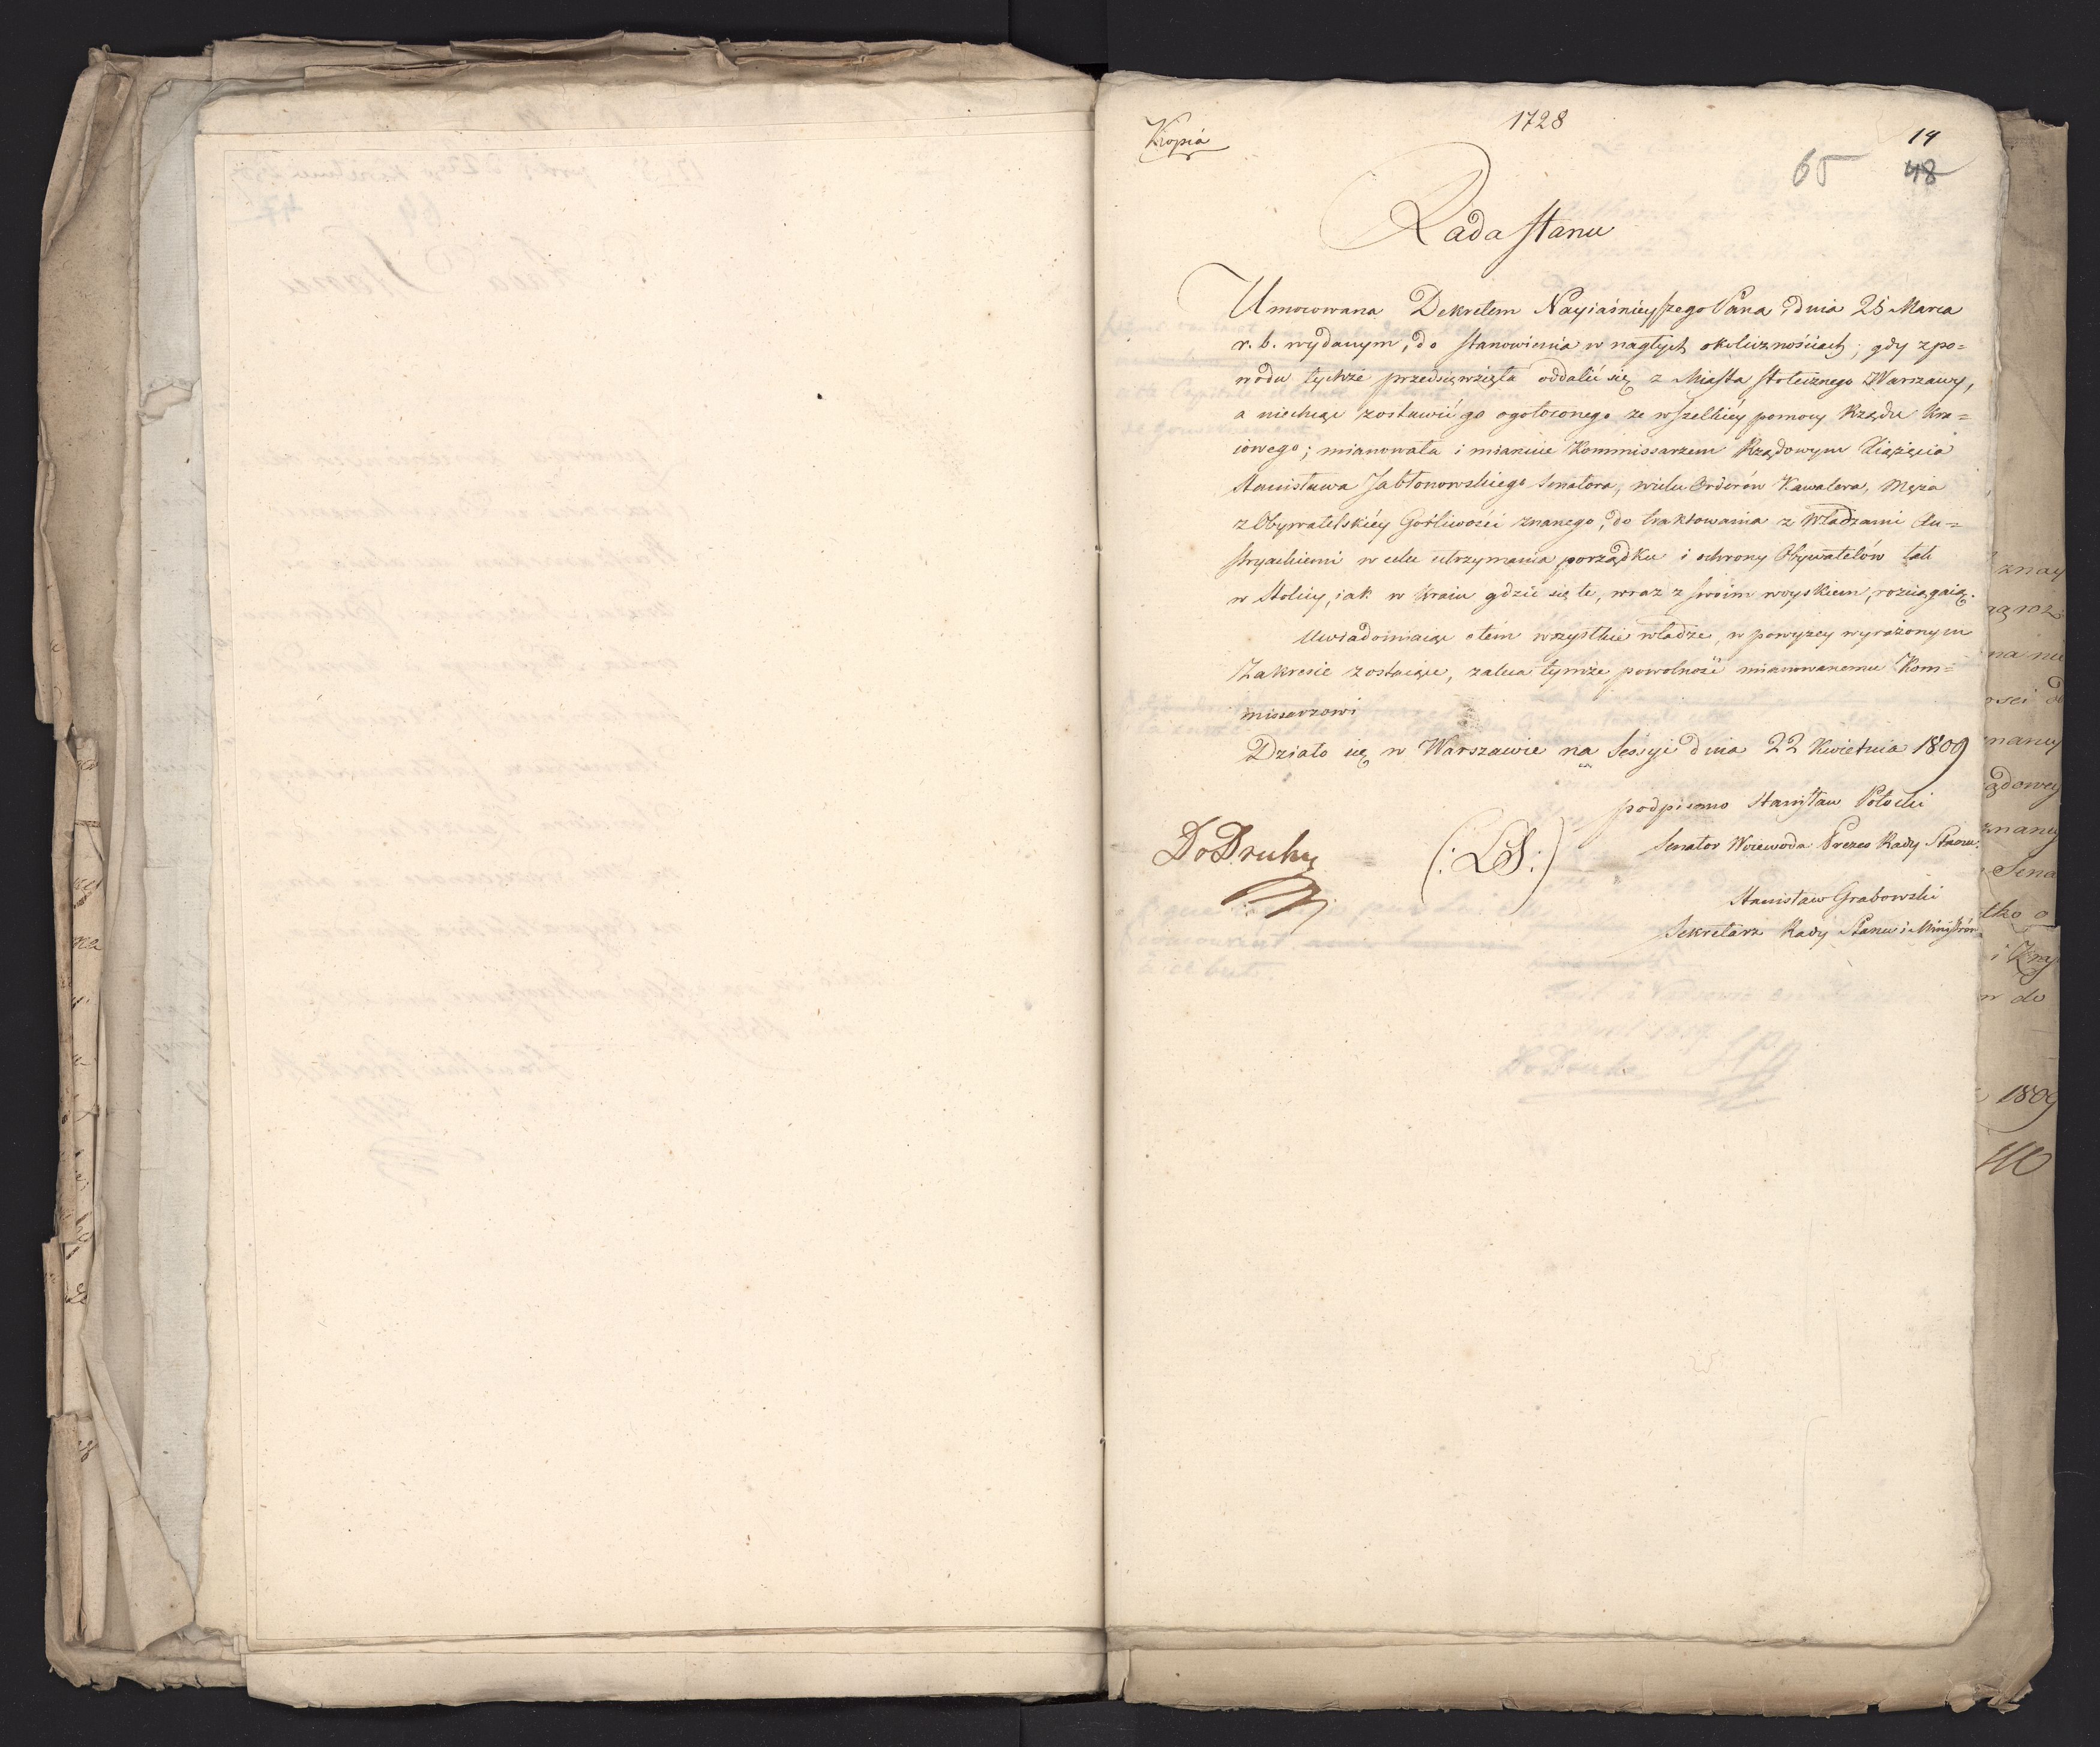 Kopia
1728
14
65 48
Rada Stanu
Umocowana Dekretem Nayiaśnieyszego Pana, dnia 25 Marca
r. b. wydanym, do stanowienia w nagłych okolicznościach; gdy z po=
wodu tychże przedsięwzięła oddalić się z Miasta stołecznego Warszawy,
a niechcąc zostawić go ogołoconego ze wszelkiéy pomocy Rządu Kra=
iowego; mianowała i mianuie Kommissarzem Rządowym Xiążęcia
Stanisława Jabłonowskiego Senatora, wielu Orderów Kawalera, Męża
z Obywatelskiéy Gorliwości znanego, do traktowania z Władzami Au=
stryackiemi w celu utrzymania porządku i ochrony Obywatelów tak
w Stolicy, iak w Kraiu gdzie się te, wraz z swoim woyskiem, rozciągaią.
Uwiadomiaiąc o tém wszystkie władze, w powyżey wyrażonym
Zakresie zostaiące, zaleca tymże powolność mianowanemu Kom=
missarzowi
Działo się w Warszawie na Sessyi dnia 22 Kwietnia 1809
podpisano Stanisław Potocki
Senator Woiewoda Prezes Rady Stanu.
Do Druku
(: LS :)
Stanisław Grabowski
Sekretarz Rady Stanu i Ministrów
1809